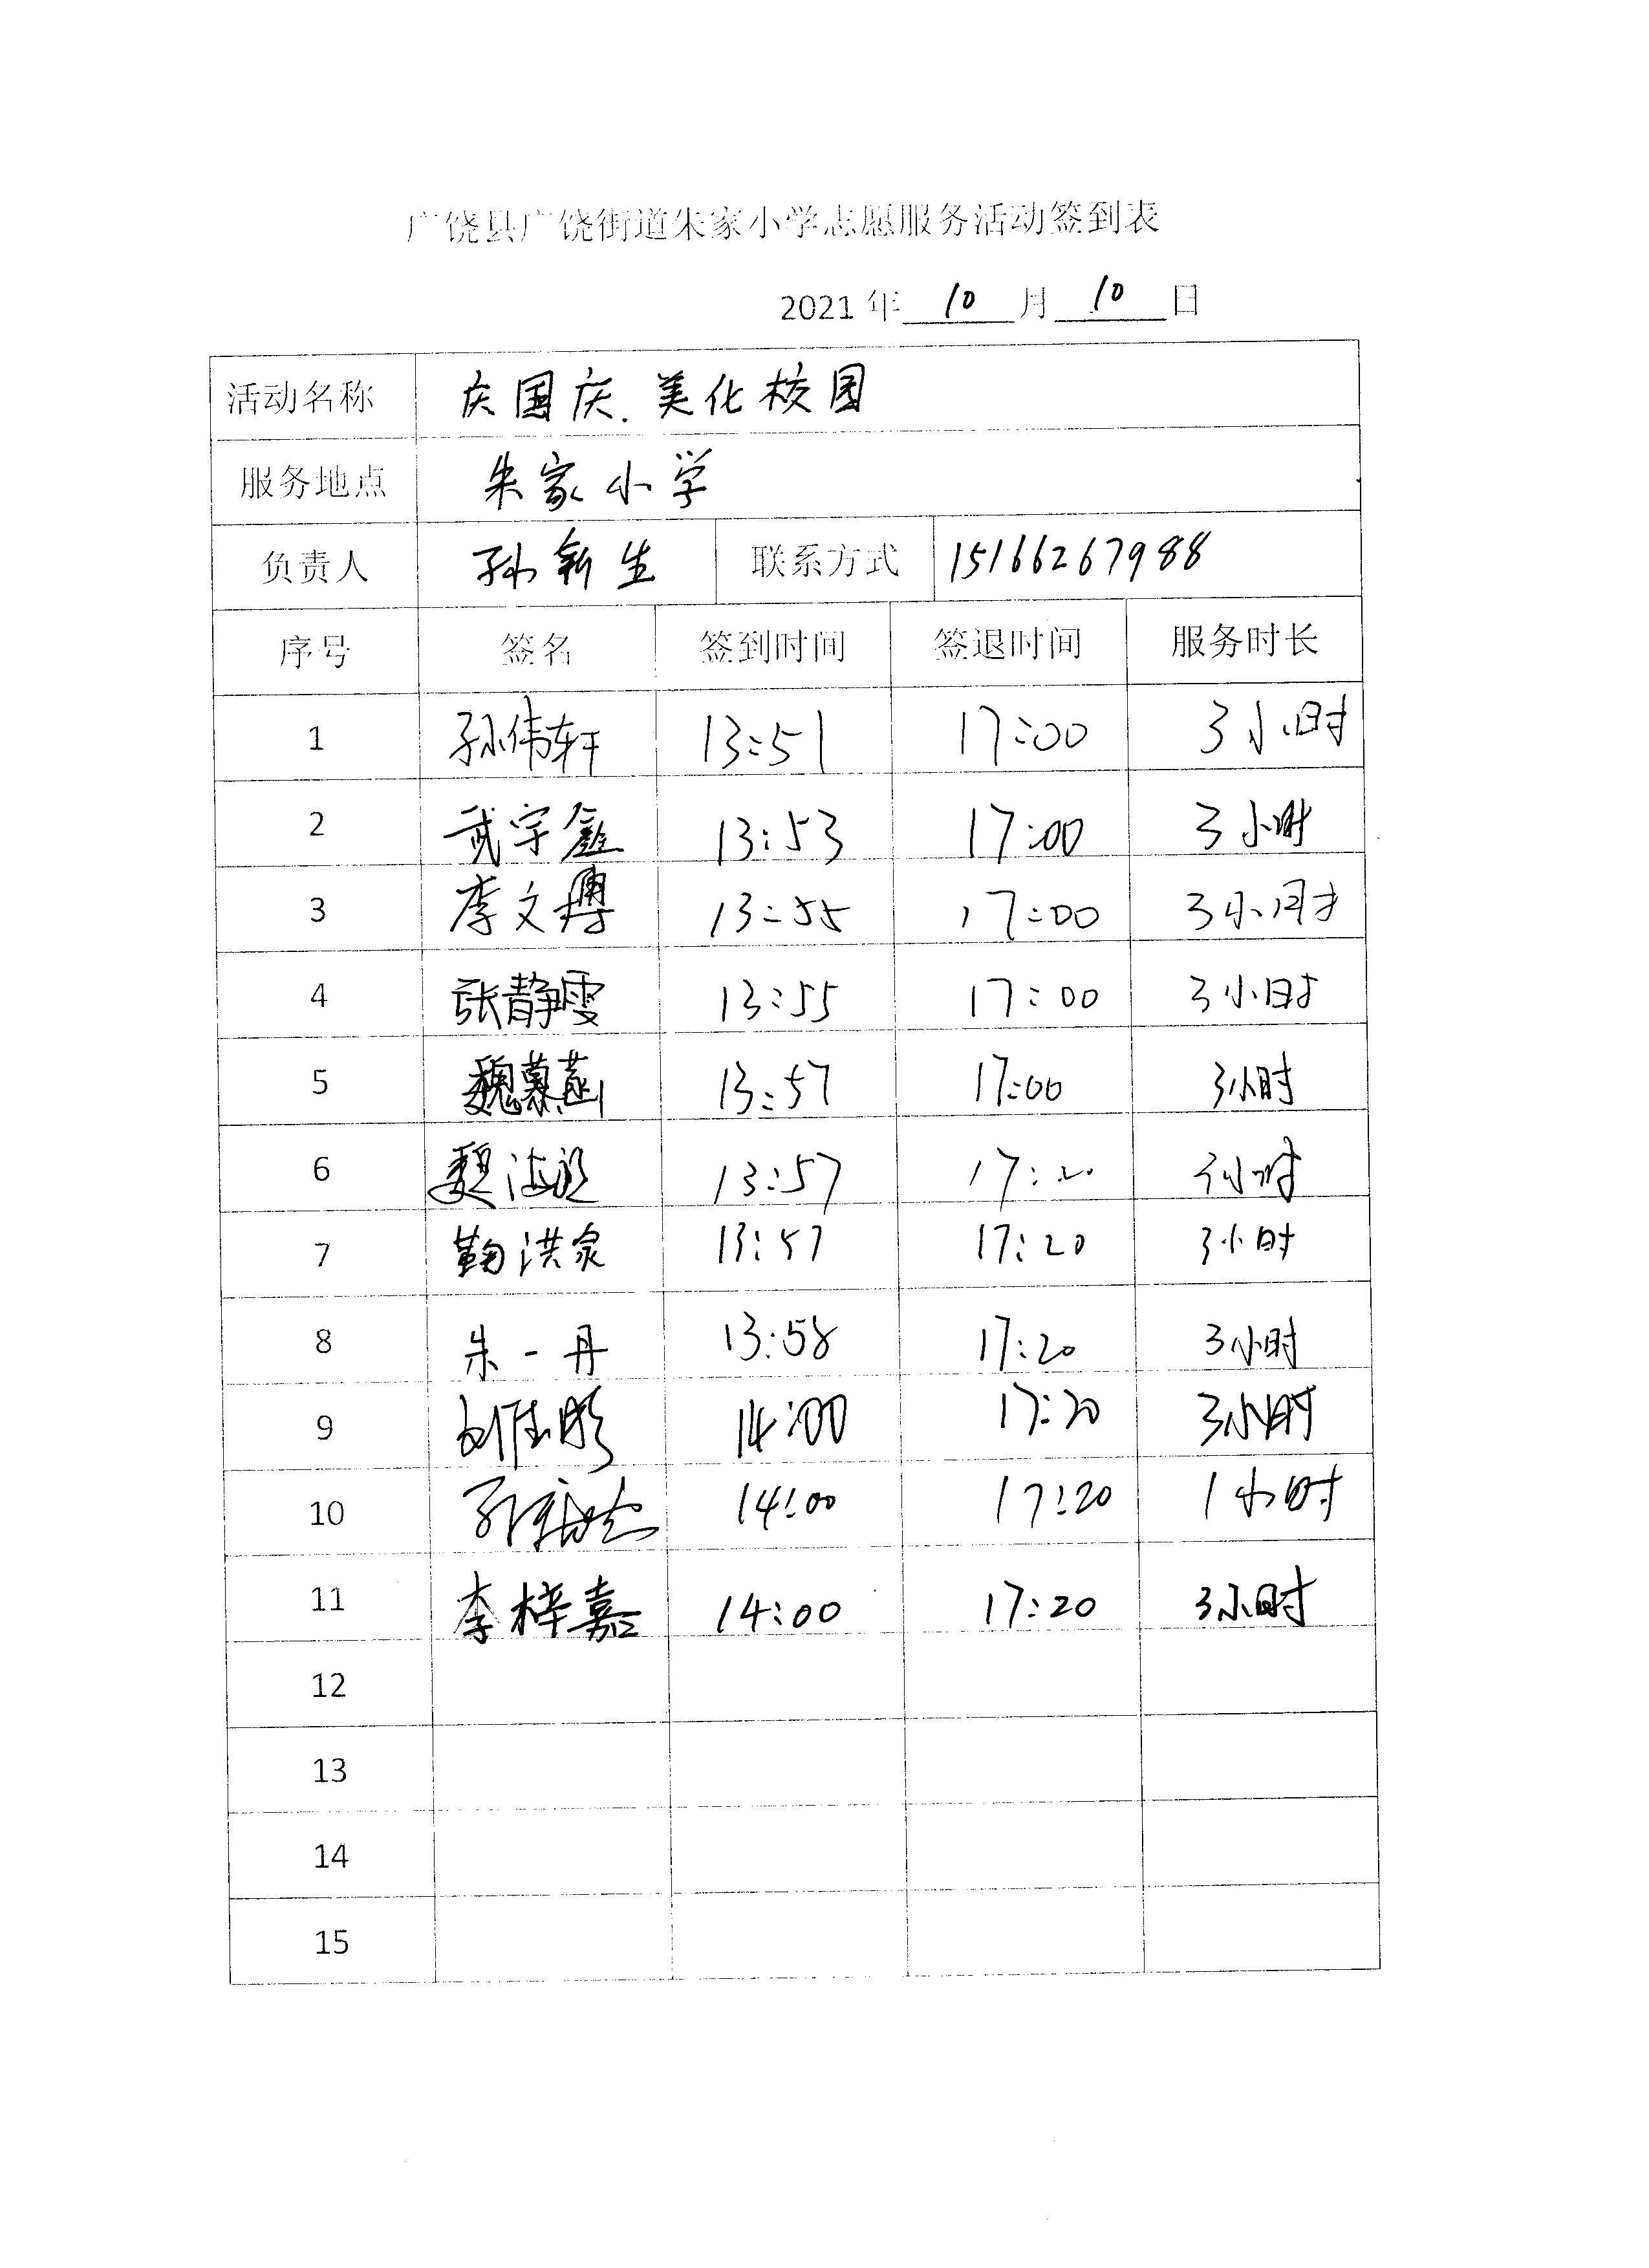 广饶县广饶街道朱家小学志愿服务活动签到表
2021 年 10 月 10 日
活动名称 庆国庆.美化校园
服务地点 朱家小学
负责人 孙新生 联系方式 15166267988
序号 签名 签到时间 签退时间 服务时长
1 孙伟轩 13:51 17:00 3小时
2 武宇鑫 13:53 17:00 3小时
3 李文博 13:55 17:00 3小时
4 张静雯 13:55 17:00 3小时
5 魏慕菡 13:57 17:00 3小时
6 魏 13:57 17:20 3小时
7 鞠洪泉 13:57 17:20 3小时
8 朱一丹 13:58 17:20 3小时
9 14:00 17:20 3小时
10 14:00 17:20 1小时
11 李梓嘉 14:00 17:20 3小时
12
13
14
15